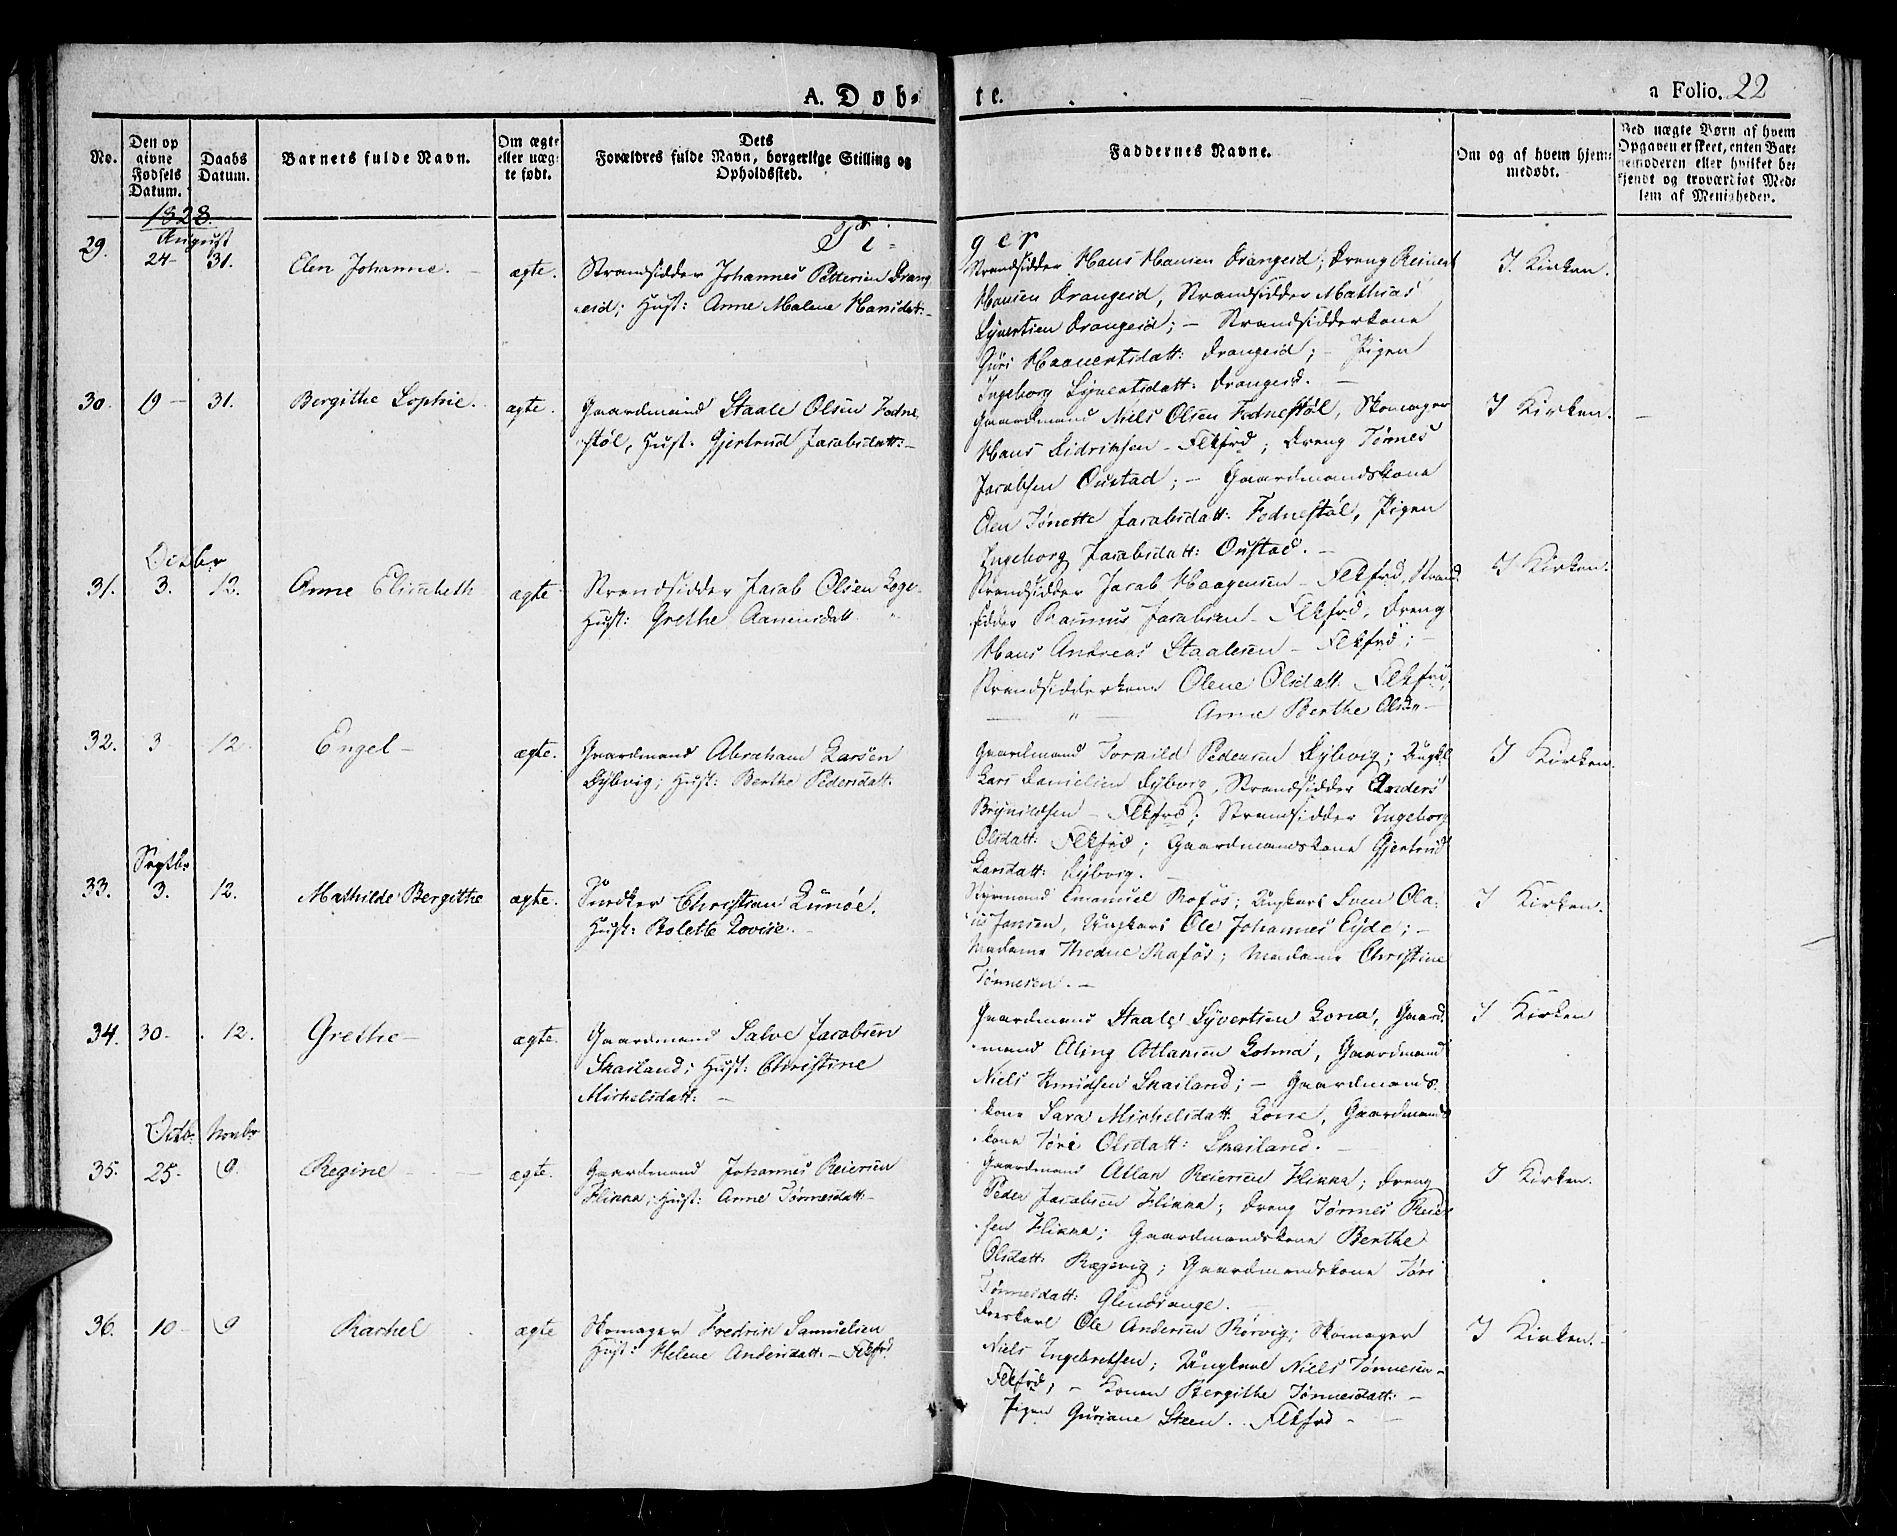 A. Døb-
te.
a Folio. 22
No.
Den op
givne
Fødsels
Datum.
Daabs
Datum.
Barnets fulde Navn.
Om ægte
eller uæg-
te født.
Dets
Forældres fulde Navn, borgerlige Stilling og
Opholdssted.
Faddernes Navne.
Om og af hvem hjem-
medøbt.
Ved uægte Børn af hvem
Opgaven er skeet, enten Bar-
nemoderen eller hvilket be-
kjendt og troværdigt Med-
lem af Menigheden.
1828.
August
Pi-
ger
29.
24
31.
Elen Johanne.
ægte.
Strandsidder Johannes Pedersen Drang
eid; Hust: Anne Malene Hansdatt:
Strandsidder Hans Hansen Drangeid; Dreng Reinert
Hansen Drangeid, Strandsidder Mathias
Syvertsen Drangeid; - Strandsidderkone
Guri Haavertsdatt: Drangeid; - Pigen
Ingeborg Syvertsdatt: Drangeid.
I Kirken.
30.
19
31.
Bergithe Sophie.
ægte.
Gaardmand Staale Olsen Fedne
støl, Hust. Gjertrud Jacobsdatt:
Gaardmand Niels Olsen Fednestøl, Skomager
Hans Didriksen - Flekfrd; Dreng Tønnes
Jacobsen Oustad; - Gaardmandskone
Elen Tønette Jacobsdatt: Fednestøl, Pigen
Ingeborg Jacobsdatt: Oustad.
I Kirken.
Octobr
31.
3.
12.
Anne Elisabeth
ægte
Strandsidder Jacob Olsen Loge
Hust: Grethe Aanensdatt
Strandsidder Jacob Haagensen - Flekfrd, Strand
sidder Rasmus Jacobsen - Flekfrd, Dreng
Hans Andreas Staalesen - Flekfrd;
Strandsidderkone Olene Olsdatt. Flekfrd,
Anne Berthe Olsd
I Kirken.
32.
3
12
Engel
ægte.
Gaardmand Abraham Larsen
Dybvig; Hust: Berthe Pedersdatt:
Gaardmand Torkild Pedersen Dybvig; Ungkl
Lars Danielsen Dybvig, Strandsidder Anders
Brynildsen - Flekfrd; Strandsidder Ingeborg
Olsdatt: Flekfrd; Gaardmandskone Gjertrud
Larsdatt: Dybvig.
I Kirken.
Septbr
33.
3.
12.
Mathilde Bergithe
ægte.
Christian Lunøe.
Hust: Bolette Lovise.
Styrmand Emanuel Rafos; Ungkarl Sven Ola
us Jansen, Ungkarl Ole Johannes Eyde;
Madame Rafos; Madame Christine
Tønnesen.
I Kirken.
34.
30
12.
Grethe
ægte.
Gaardmand Salve Jacobsen
Skailand; Hust: Christine
Michelsdatt:
Gaardmand Staale Syvertsen Lona, Gaard
mand Aling Atlaksen Lolma, Gaardmand
Niels Knudsen Skailand; - Gaardmands
kone Sara Michelsdatt: Lone, Gaardmands
kone Tøri Olsdatt: Skailand.
I Kirken
Octb.
Novbr
35.
25
9.
Regine
ægte.
Gaardmand Johannes Reiersen
Hlikka; Hust: Anne Tønnesdatt
Gaardmand Atlak Reiersen Hlikka; Dreng
Peder Jacobsen Hlikka; Dreng Tønnes Reier
sen Hlikka; Gaardmandskone Berthe
Olsdatt: Rægevig; Gaardmandskone Tøri
Tønnesdatt: Glendrange.
I Kirken.
36.
10
9
Rachel
ægte
Skomager Fredrik Samuelsen
Hust: Helene Andersdatt: - Flekfrd.
Ole Andersen Rørvig; Skomager
Niels Ingebretsen; Ungkarl Niels Tønnesen
Flekfrd; - Konen Bergithe Tønnesdatt:
Pigen Guriane Steen. Flekfrd
I Kirken.